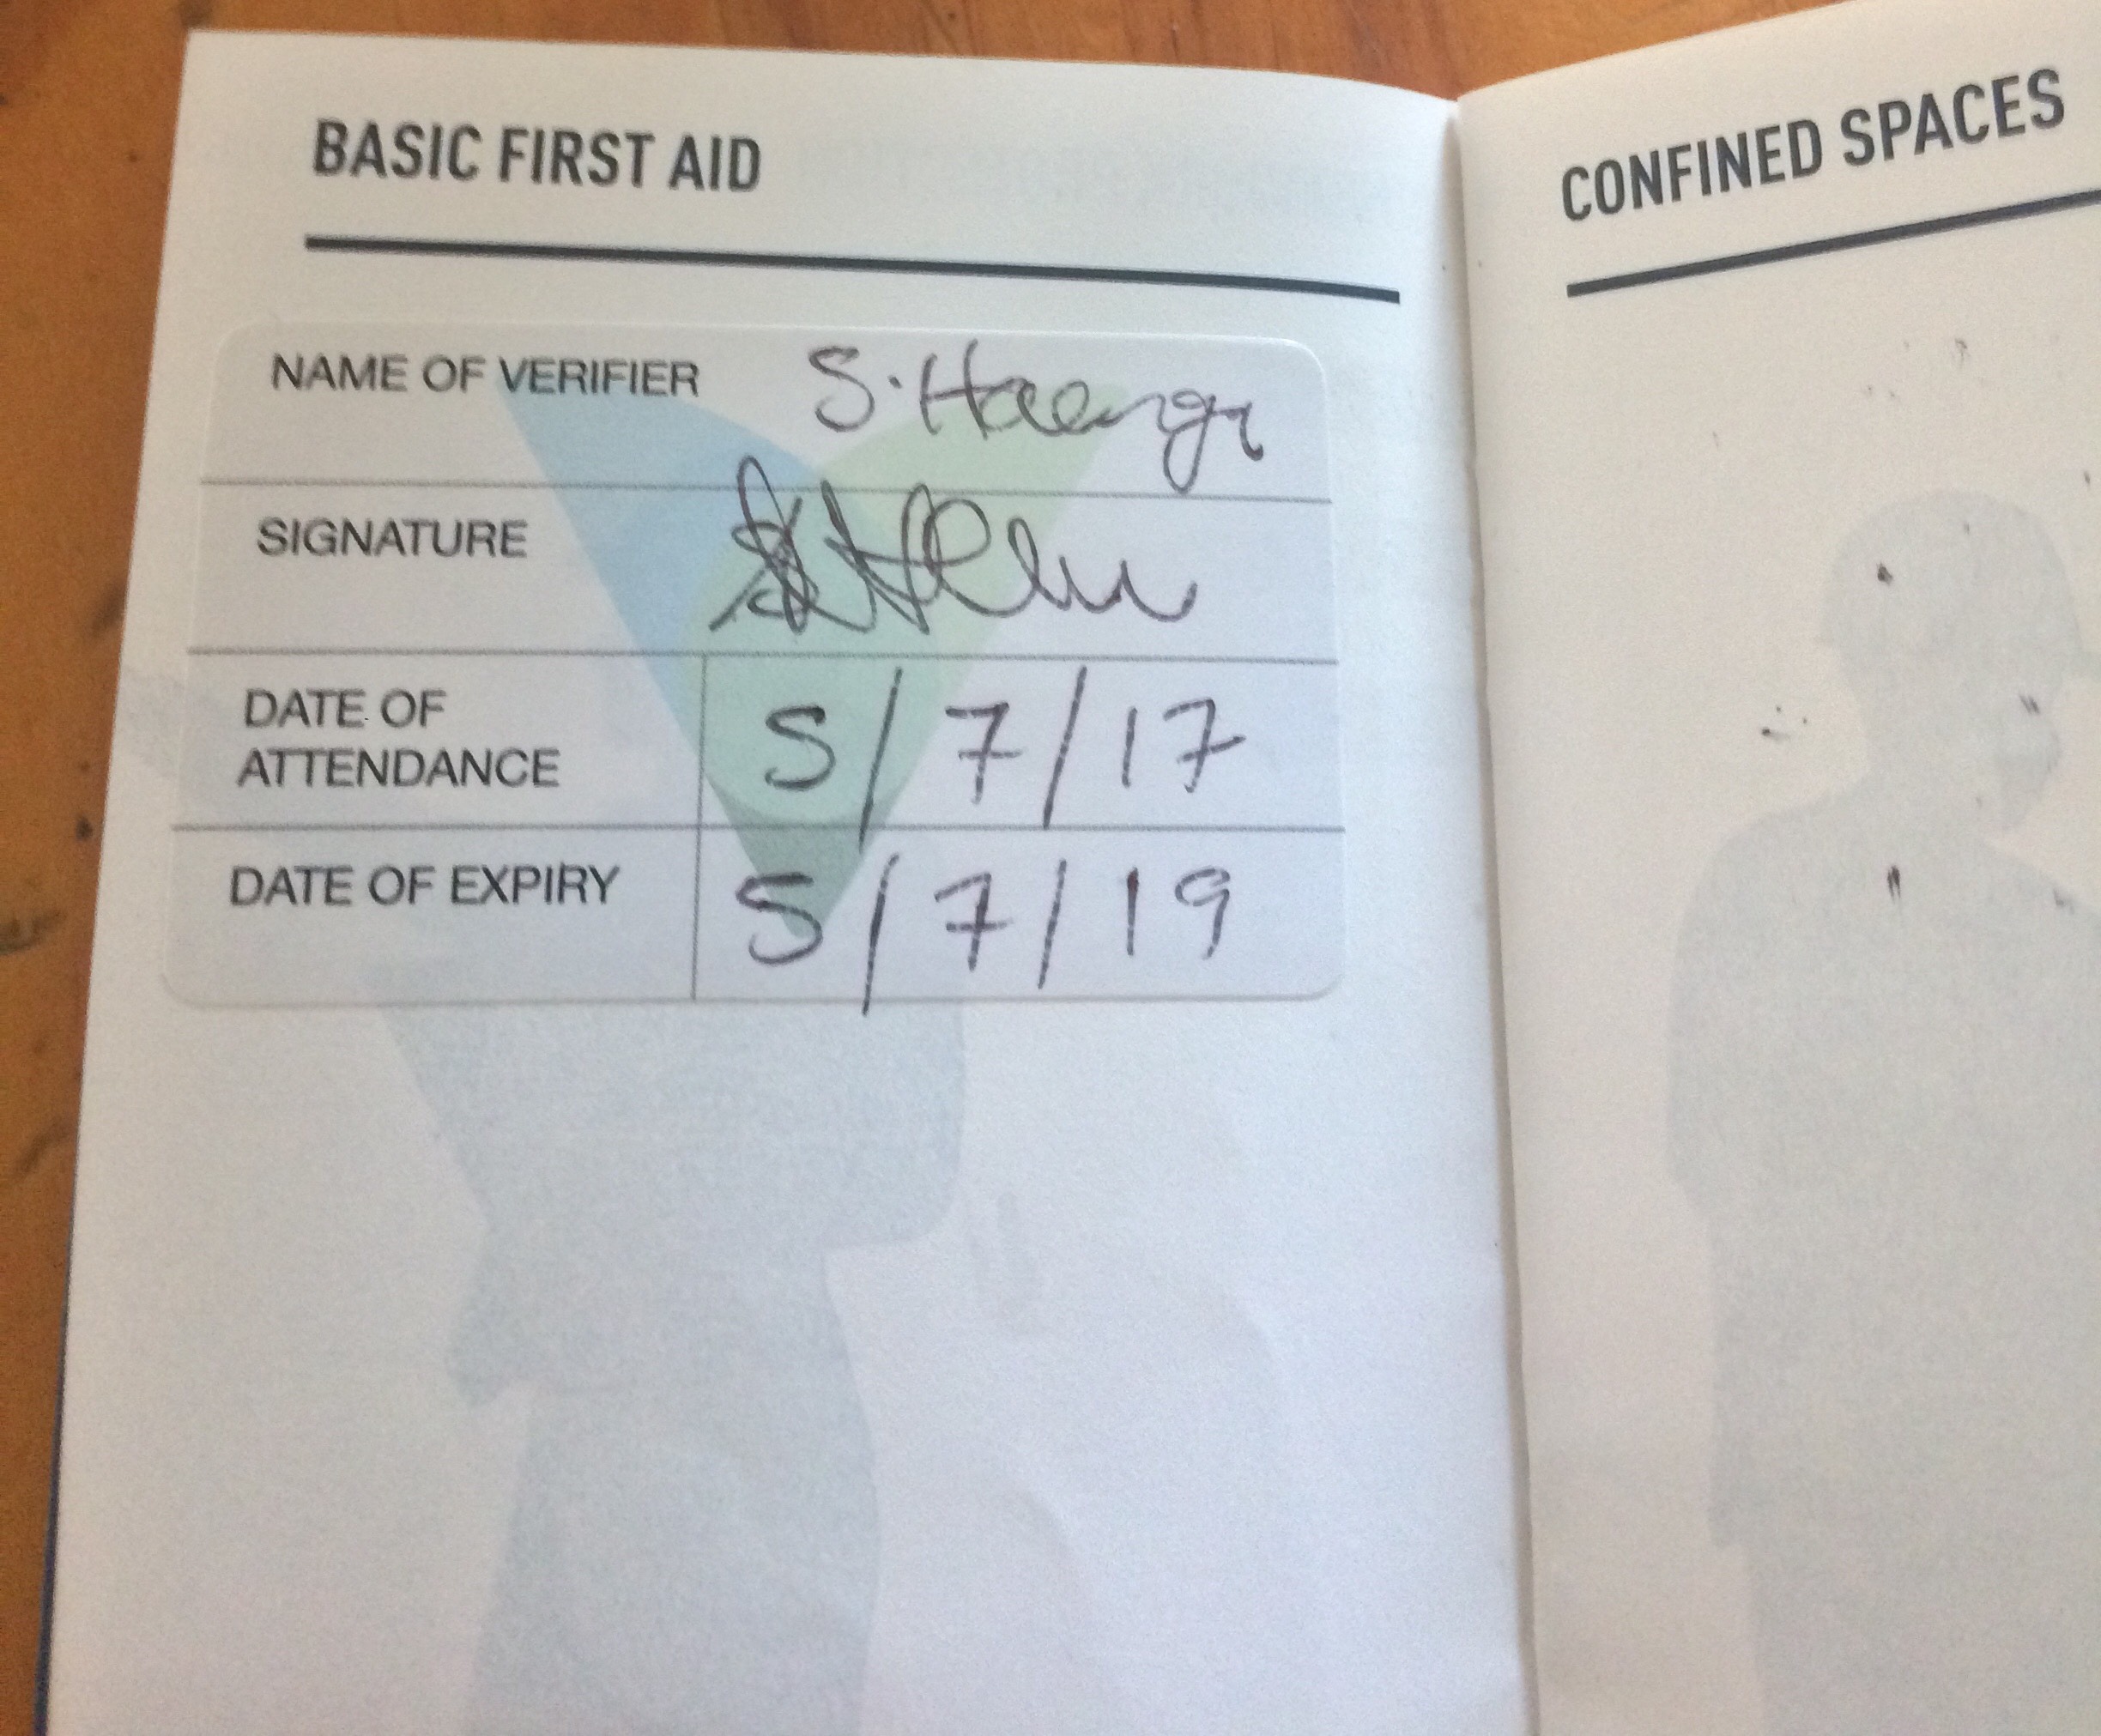 BASIC FIRST AID
NAME OF VERIFIER S.
SIGNATURE
DATE OF
ATTENDANCE 5/7/17
DATE OF EXPIRY 5/7/19
CONFINED SPACES